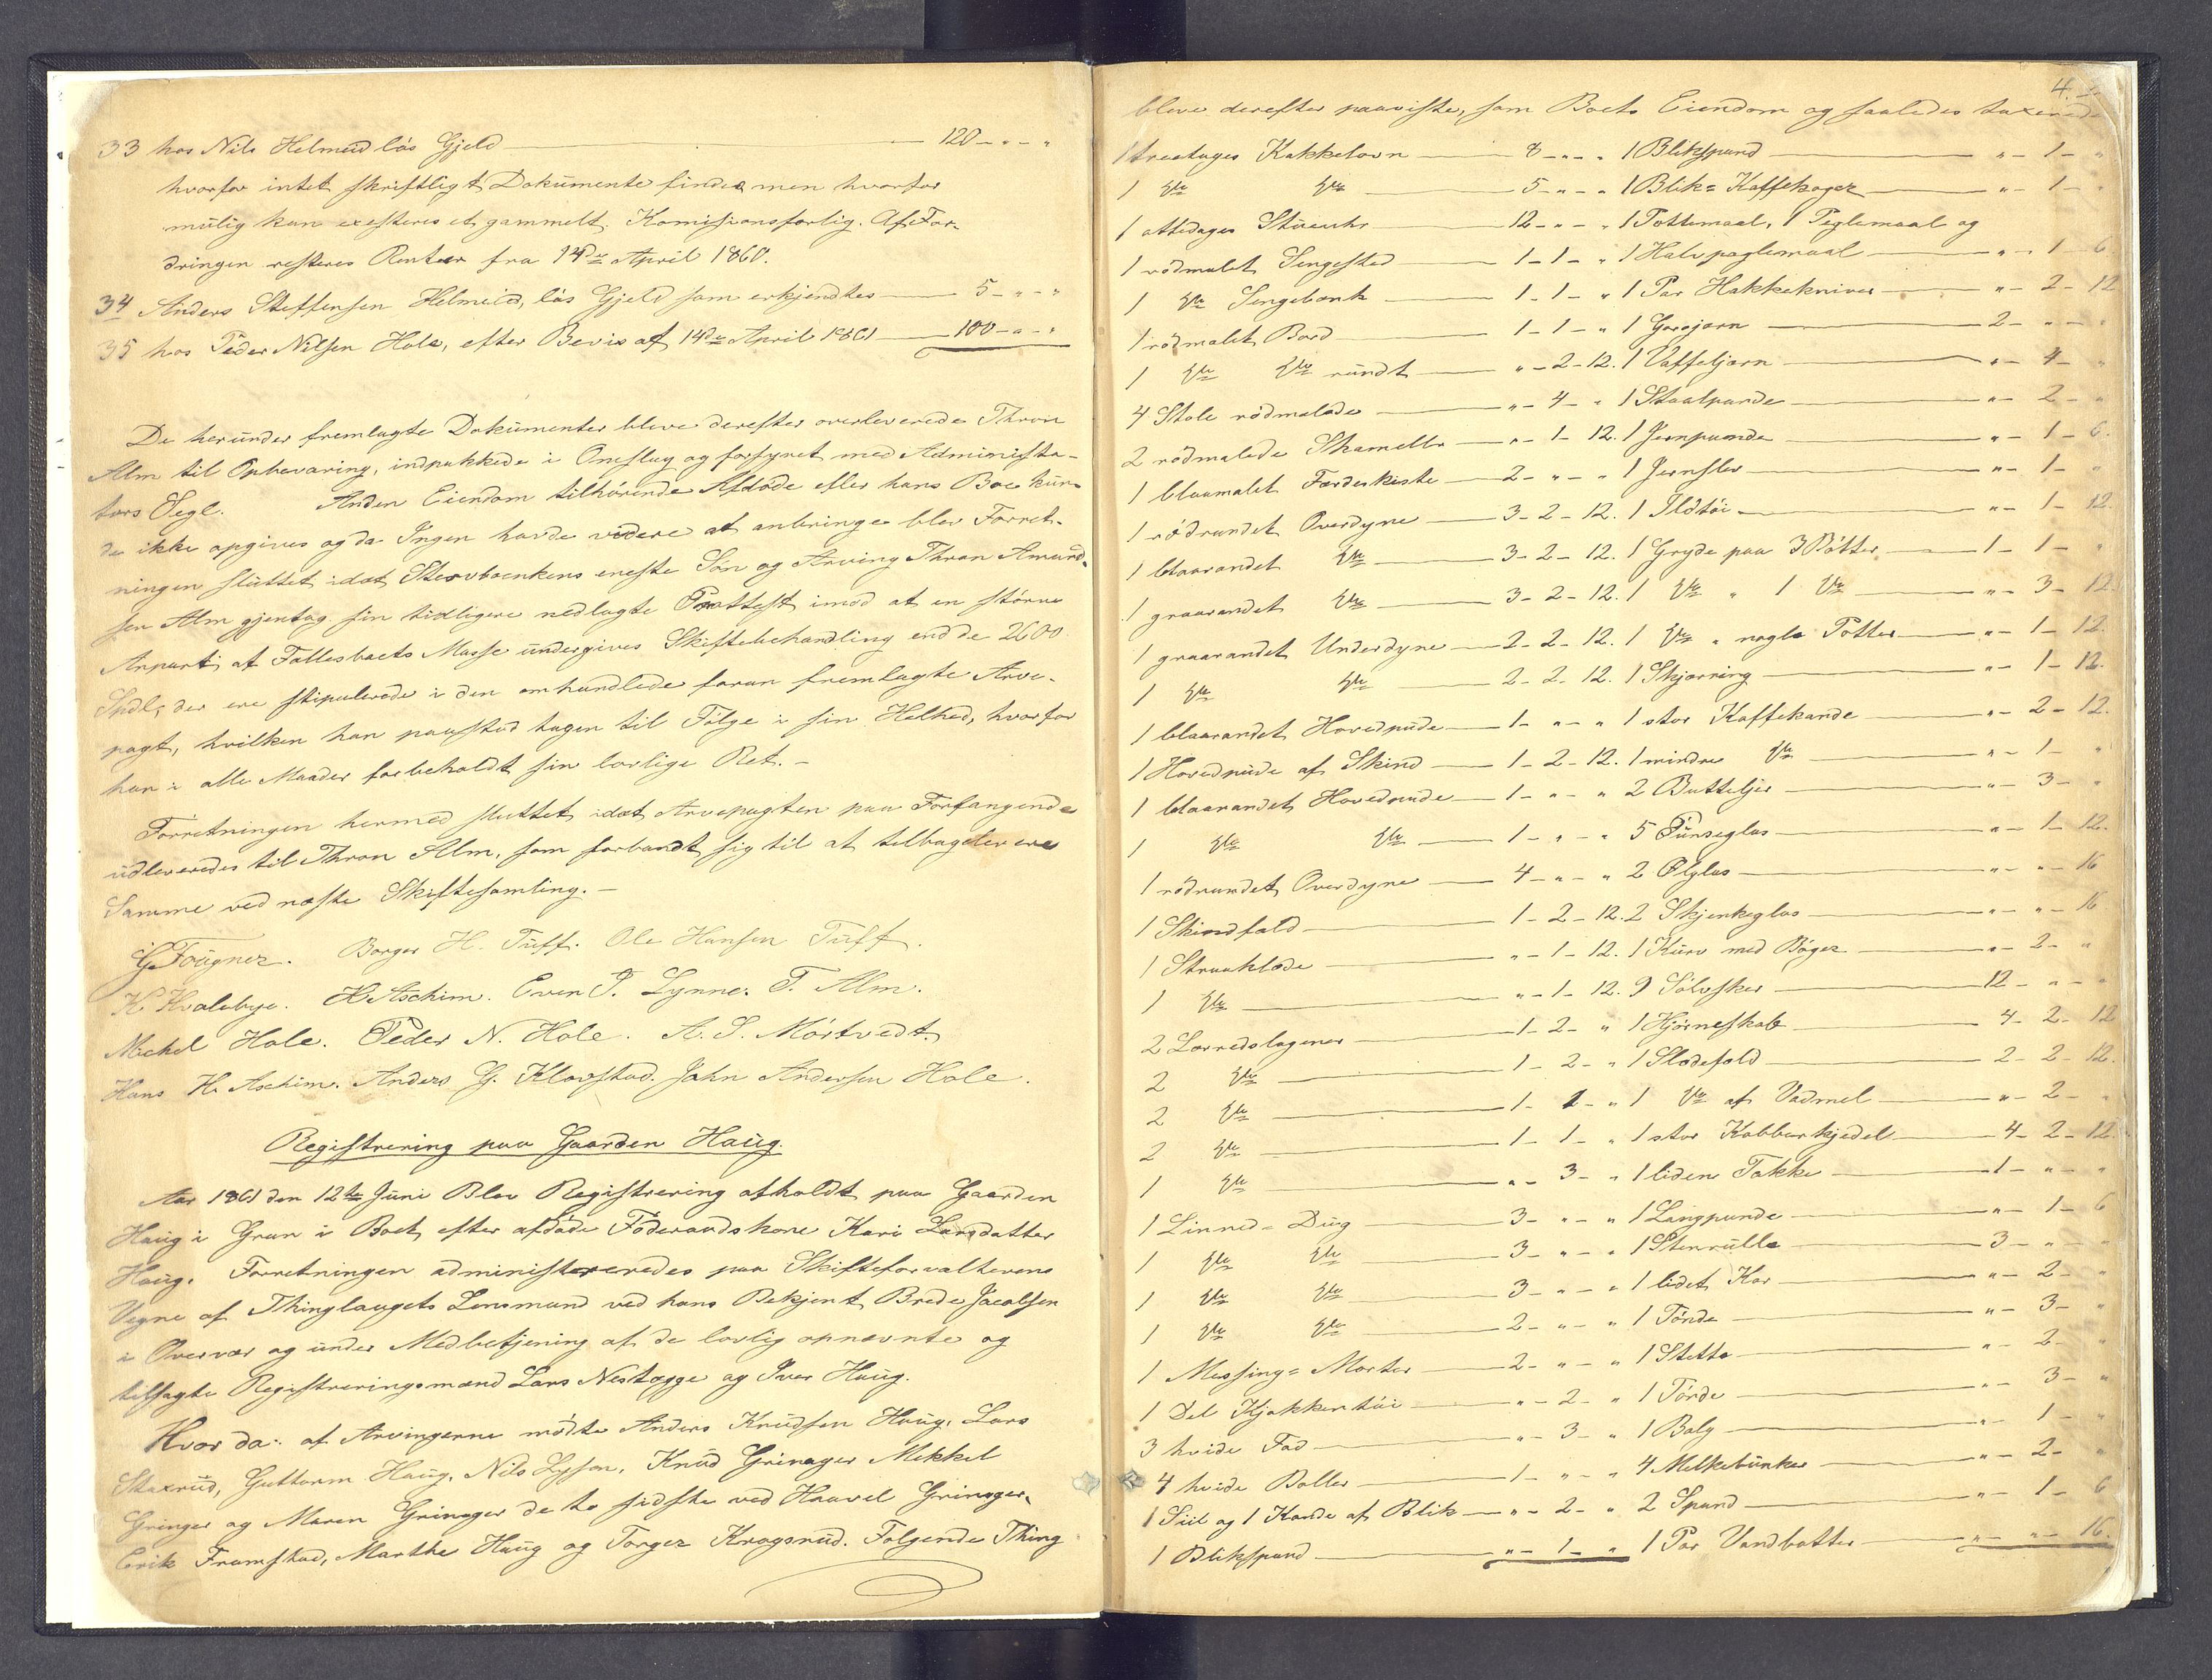 33 hos Nils Helmeid løs Gjeld — 120 - „ - „
hvorfor intet skriftligt Dokumente findes men hvorfor
mulig kan exsisteres et gammelt Komisionsforlig. Af For-
dringen resteres Renter fra 14de April 1860.
34 Anders Steffensen Helmeid, løs Gjeld som erkjendtes — 5 - „ - „
35 hos Peder Nilsen Hole, efter Bevis af 14de April 1861 — 100 - „ - „
De herunder fremlagte Dokumenter bleve derefter overleverede Thron
Alm til Opbevaring, indpakkede i Omslag og forsynet med Administra-
tors Segl. Anden Eiendom tilhørende Afdøde eller hans Boe kun-
de ikke opgives og da Ingen havde videre at anbringe blev Forret-
ningen sluttet idet Stervboenkens eneste Søn og Arving Thron Amund-
sen Alm gjentog sin tidligere nedlagte Prottest imod at en større
Anpart af Fællesboets Masse undergives Skiftebehandling end de 2600
Spdl, der ere stipulerede i den omhandlede foran fremlagte Arve-
pagt, hvilken han paastod tagen til Følge i sin Helhed, hvorfor
han i alle Maader forbeholdt sin lovlige Ret. -
Forretningen hermed sluttet idet Arvepagten paa Forlangende
udleveredes til Thron Alm, som forbandt sig til at tilbagelevere
Samme ved næste Skiftesamling. -
G Fougner. Borger H. Tuff. Ole Hansen Tuff.
K Hvalebye. H Aschim. Even P. Lynne. T. Alm.
Michel Hole. Peder N. Hole. A. S. Mörtvedt.
Hans H. Aschim. Anders G. Klavstad. John Andersen Hole.
Registrering paa Gaarden Haug.
Aar 1861 den 12te Juni Blev Registrering afholdt paa Gaarden
Haug i Gran i Boet efter afdøde Føderaadskone Kari Larsdatter
Haug. Forretningen administreredes paa Skifteforvalterens
Vegne af Thinglaugets Lensmand ved hans Bekjent Brede Jacobsen
i Overvær og under Medbetjening af de lovlig opnævnte og
tilsagte Registreringsmænd Lars Nestegge og Iver Haug.
Hvor da: af Arvingerne mødte Anders Knudsen Haug, Lars
Staxrud, Guttorm Haug, Nils Hyson, Knud Grinager Mikkel
Gringer og Maren Grinager de to sidste ved Haavel Grinager,
Erik Framstad, Marthe Haug og Torger Krogsrud. Følgende Thing
4.
bleve derefter paaviste, som Boets Eiendom og saaledes taxerede
1 treetages Kakkelovn — 8 - „ - „ 1 Blikspand — „ - 1 - „
1 do do — 5 - „ - „ 1 Blik= Kaffekoger — „ - 1 - „
1 ottedages Stueuhr — 12 - „ - „ 1 Pottemaal, 1 Peglemaal og
1 rødmalet Sengested — 1 - 1 - „ 1 Halvpaglemaal — „ - 1 - 6
1 do Sengebænk — 1 - 1 - „ 1 Par Hakkekniver — „ - 2 - 12
1 rødmalet Bord — 1 - 1 - „ 1 Gorojærn — 2 - „ - „
1 do do rundt — „ - 2 - 12. 1 Vaffeljærn — „ - 4 - „
4 Stole rødmalede — „ - 4 - „ 1 Staalpande — „ - 2 - „
2 rødmalede Skameller — „ - 1 - 12. 1 Jernpande — „ - 1 - 6.
1 blaamalet Færdeskiste — 2 - „ - „ 1 Jernslev — „ - 1 - „
1 rødrandet Overdyne — 3 - 2 - 12. 1 Ildtøi — „ - 1 - 12.
1 blaarandet do — 3 - 2 - 12. 1 Gryde paa 3 Potter — 1 - 1 - „
1 graarandet do — 3 - 2 - 12. 1 do „ 1 do — „ - 3 - 12.
1 graarandet Underdyne — 2 - 2 - 12. 1 do „ nogle Potter — „ - 1 - 12.
1 do do — 2 - 2 - 12. 1 Skjæring — „ - 1 - 12.
1 blaarandet Hovedpude — 1 - „ - „ 1 stor Kaffekande — „ - 2 - 12.
1 Hovedpude af Skind — 1 - 2 - 12. 1 mindre do — „ - 1 - „
1 blaarandet Hovedpude — 1 - „ - „ 2 Butteljer — „ - 3 - „
1 do do — 1 - „ - „ 5 Punseglas — „ - 1 - 12.
1 rødrandet Overdyne — 4 - „ - „ 2 Ølglas — „ - „ - 16
1 Skindfeld — 1 - 2 - 12. 2 Skjenkeglas — „ - „ - 16
1 Straaklæde — „ - 1 - 12. 1 Kurv med Bøger — „ - 2 - „
1 do — „ - 1 - 12. 9 Sølvskeer — 12 - „ - „
2 Lærredslagener — 1 - 2 - „ 1 Hjørneskab — 4 - 2 - 12
2 do — 1 - 2 - „ 1 Slædefeld — 2 - 2 - 12.
2 do — 1 - 1 - „ 1 do af Vadmel — „ - 2 - „
2 do — 1 - 1 - „ 1 stor Kobberkjedel — 4 - 2 - 12.
1 do — „ - 3 - „ 1 liden Takke — 1 - „ - „
1 Linned- Dug — 3 - „ - „ 1 Langpande — „ - 1 - 6
1 do do — 3 - „ - „ 1 Stenrulle — 3 - „ - „
1 do do — 3 - „ - „ 1 lidet Kar — „ - 2 - „
1 do do — 2 - „ - „ 1 Tønde — „ - 3 - „
1 Messing= Morter — 2 - „ - „ 1 Stette — „ - 2 - „
1 Del Kjøkkentøi — „ - 2 - „ 1 Tønde — „ - 3 - „
3 hvide Fad — „ - 3 - „ 1 Balg — „ - 1 - „
4 hvide Boller — 1 - „ - „ 4 Melkebunker — „ - 2 - „
1 Siil og 1 Kande af Blik — „ - 2 - „ 2 Spand — „ - 1 - 6
1 Blikspand — „ - 1 - „ 1 Par Vandbøtter — „ - „ - 16.